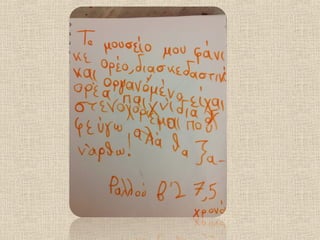 Το μουσείο μου φάνι
κε ορέο, διασκεδαστικό
και οργανομένο είχαι
ορέα παιχνίδια χ
στενοχοριέμαι που
φεύγω αλά θα ξα-
ναρθω!
Ραλλού β'2 7,5
χρονό